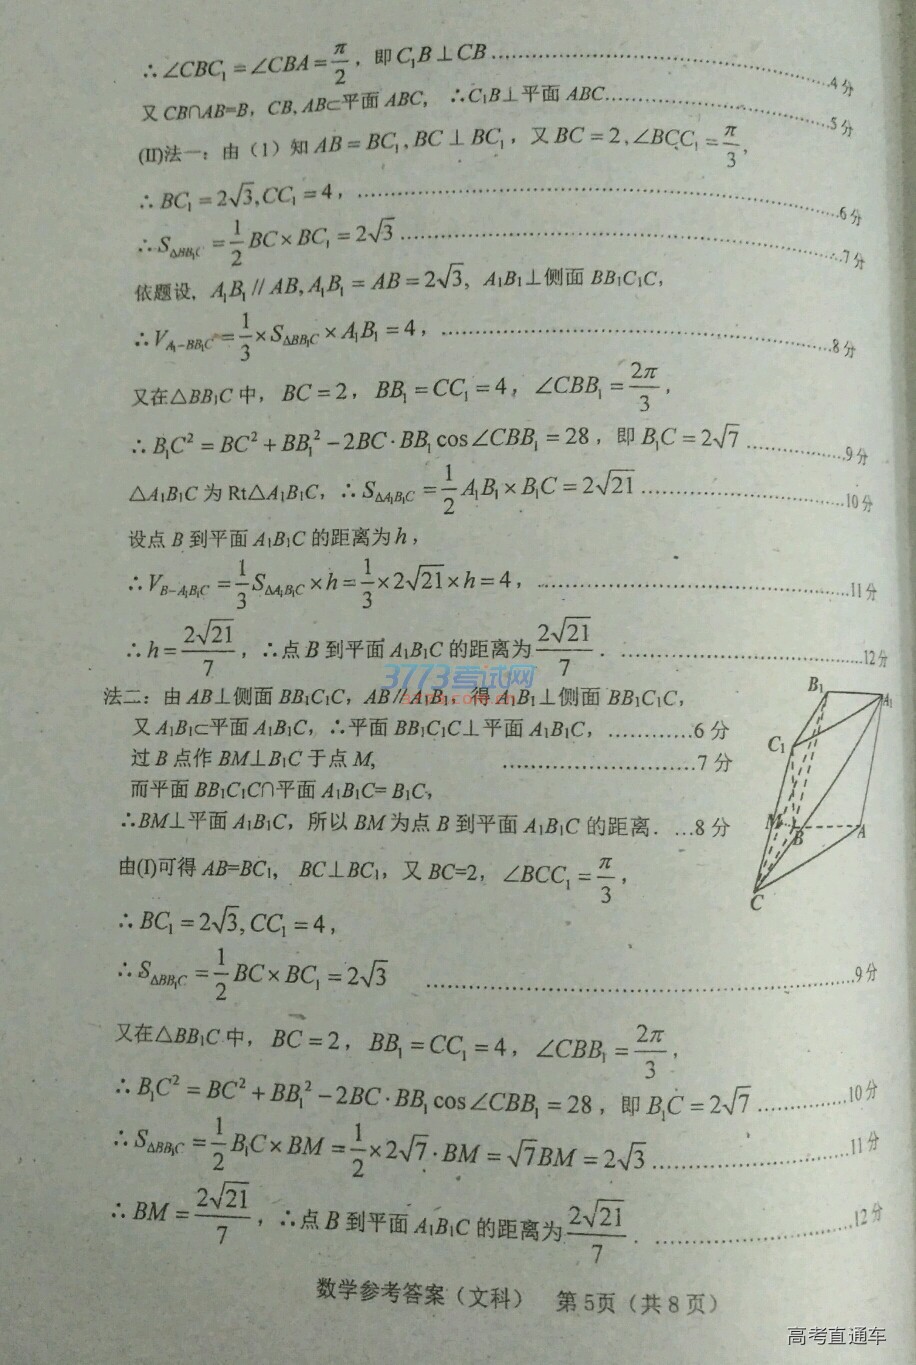 ∴∠CBC₁=∠CBA=π/2，即C₁B⊥CB……………………4分
又 CB∩AB=B，CB, AB⊂平面 ABC，∴C₁B⊥平面 ABC……………………5分
(II)法一：由（1）知 AB=BC₁, BC⊥BC₁，又 BC=2, ∠BCC₁=π/3，
∴BC₁=2√3, CC₁=4，……………………6分
∴S△BB₁C=1/2 BC×BC₁=2√3……………………7分
依题设，A₁B₁//AB, A₁B₁=AB=2√3，A₁B₁⊥侧面 BB₁C₁C，
∴V_{A₁-BB₁C}=1/3×S△BB₁C×A₁B₁=4，……………………8分
又在△BB₁C 中，BC=2，BB₁=CC₁=4，∠CBB₁=2π/3，
∴B₁C²=BC²+BB₁²-2BC·BB₁cos∠CBB₁=28，即B₁C=2√7……………………9分
△A₁B₁C 为 Rt△A₁B₁C，∴S△A₁B₁C=1/2 A₁B₁×B₁C=2√21……………………10分
设点 B 到平面 A₁B₁C 的距离为h，
∴V_{B-A₁B₁C}=1/3 S△A₁B₁C×h=1/3×2√21×h=4，……………………11分
∴h=2√21/7，∴点 B 到平面 A₁B₁C 的距离为2√21/7．……………………12分
3773考试网
法二：由 AB⊥侧面 BB₁C₁C，AB//A₁B₁，得 A₁B₁⊥侧面 BB₁C₁C，
又 A₁B₁⊂平面 A₁B₁C，∴平面 BB₁C₁C⊥平面 A₁B₁C，…………6分
过 B 点作 BM⊥B₁C 于点 M, ……………………7分
而平面 BB₁C₁C∩平面 A₁B₁C= B₁C，
∴BM⊥平面 A₁B₁C，所以 BM 为点 B 到平面 A₁B₁C 的距离．…8分
由(I)可得 AB=BC₁，BC⊥BC₁，又 BC=2，∠BCC₁=π/3，
∴BC₁=2√3, CC₁=4，
∴S△BB₁C=1/2 BC×BC₁=2√3 ……………………9分
又在△BB₁C 中，BC=2，BB₁=CC₁=4，∠CBB₁=2π/3，
∴B₁C²=BC²+BB₁²-2BC·BB₁cos∠CBB₁=28，即B₁C=2√7……………………10分
∴S△BB₁C=1/2 B₁C×BM=1/2×2√7·BM=√7BM=2√3……………………11分
∴BM=2√21/7，∴点 B 到平面 A₁B₁C 的距离为2√21/7．……………………12分
B₁
A₁
C₁
M
B
A
C
数学参考答案（文科） 第5页（共8页）
高考直通车